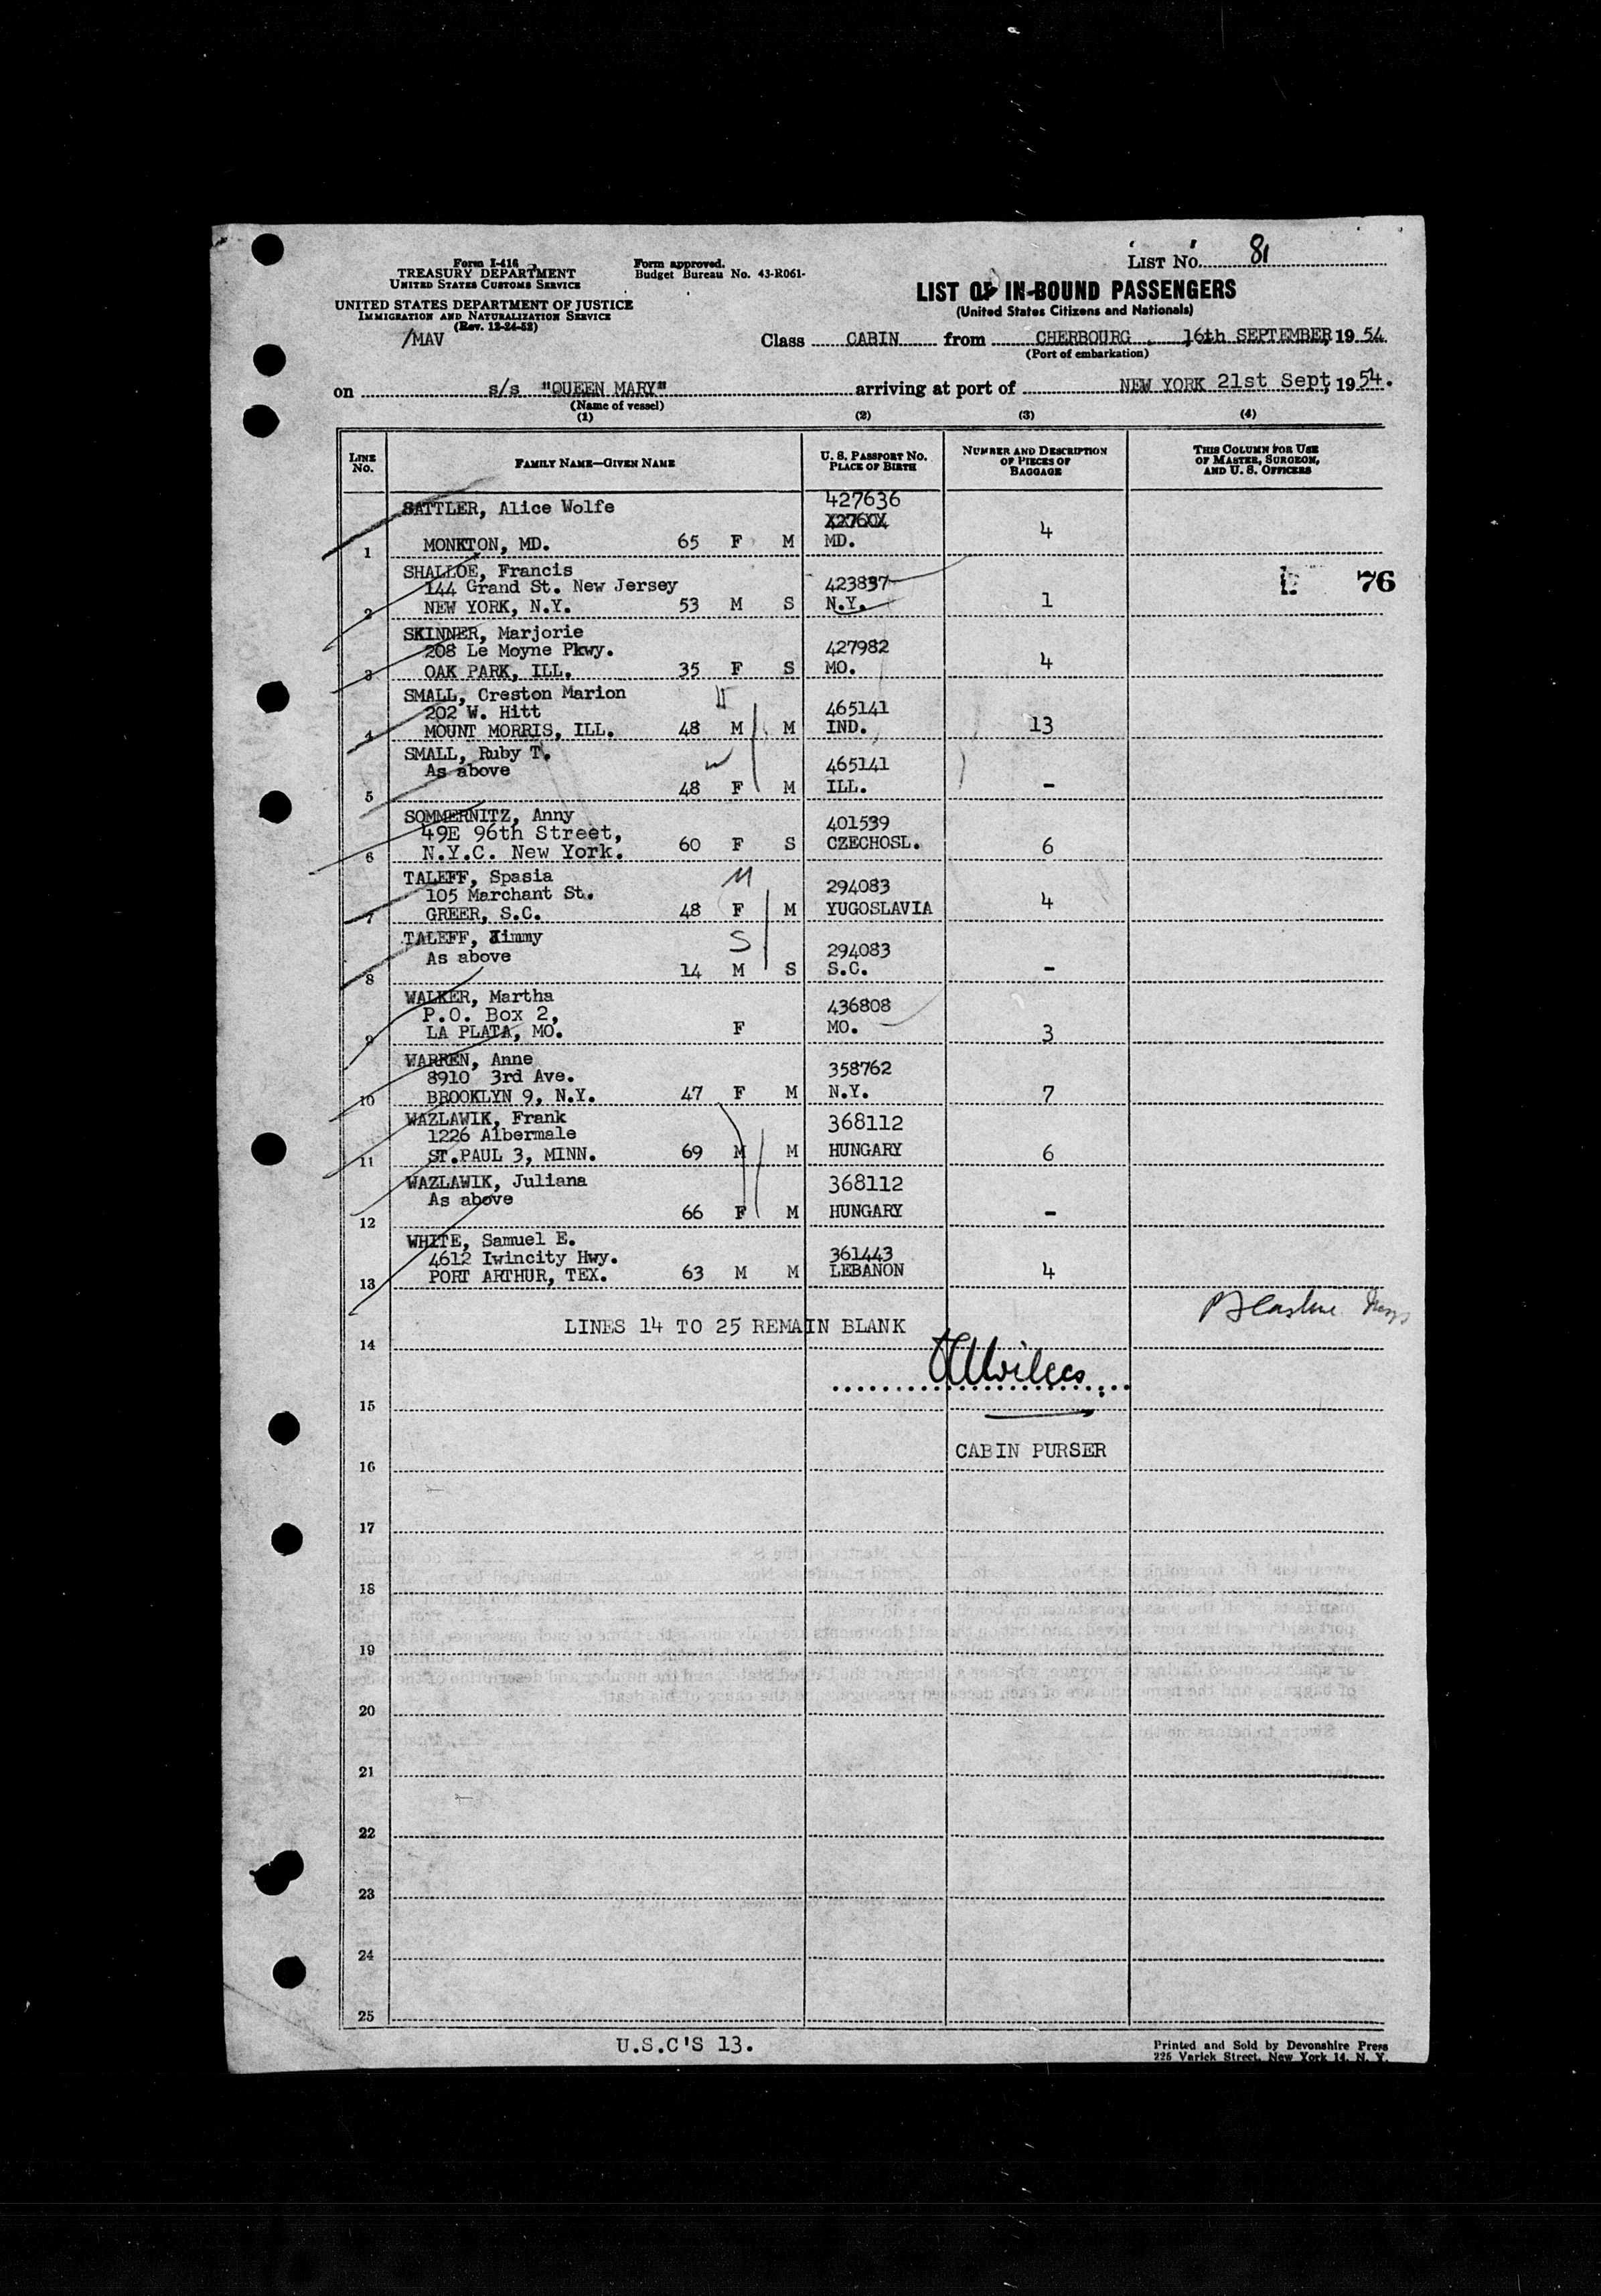 LIST NO. 81
Form I-416
TREASURY DEPARTMENT
UNITED STATES CUSTOMS SERVICE
UNITED STATES DEPARTMENT OF JUSTICE
IMMIGRATION AND NATURALIZATION SERVICE
(Rev. 12-24-52)
/MAV
Form approved.
Budget Bureau No. 43-R061-
LIST OF IN-BOUND PASSENGERS
(United States Citizens and Nationals)
Class CABIN from CHERBOURG, 16th SEPTEMBER, 1954
(Port of embarkation)
on s/s "QUEEN MARY" arriving at port of NEW YORK 21st Sept, 1954.
(Name of vessel)
(1) (2) (3) (4)
LINE NO.
FAMILY NAME—GIVEN NAME
U. S. PASSPORT NO.
PLACE OF BIRTH
NUMBER AND DESCRIPTION
OF PIECES OF
BAGGAGE
THIS COLUMN FOR USE
OF MASTER, SURGEON,
AND U. S. OFFICERS
SATTLER, Alice Wolfe 427636
1 MONKTON, MD. 65 F M MD. 4
SHALLOE, Francis
144 Grand St. New Jersey 423837
2 NEW YORK, N.Y. 53 M S N.Y. 1
76
SKINNER, Marjorie
208 Le Moyne Pkwy. 427982
3 OAK PARK, ILL. 35 F S MO. 4
SMALL, Creston Marion
202 W. Hitt 465141
4 MOUNT MORRIS, ILL. 48 M M IND. 13
SMALL, Ruby T.
As above 465141
5 48 F M ILL. -
SOMMERNITZ, Anny
49E 96th Street, 401539
6 N.Y.C. New York. 60 F S CZECHOSL. 6
TALEFF, Spasia M
105 Marchant St. 294083
7 GREER, S.C. 48 F M YUGOSLAVIA 4
TALEFF, Jimmy S
As above 294083
8 14 M S S.C. -
WALKER, Martha
P.O. Box 2, 436808
9 LA PLATA, MO. F MO. 3
WARREN, Anne
8910 3rd Ave. 358762
10 BROOKLYN 9, N.Y. 47 F M N.Y. 7
WAZLAWIK, Frank 368112
1226 Albermale
11 ST.PAUL 3, MINN. 69 M M HUNGARY 6
WAZLAWIK, Juliana 368112
As above
12 66 F M HUNGARY -
WHITE, Samuel E.
4612 Iwincity Hwy. 361443
13 PORT ARTHUR, TEX. 63 M M LEBANON 4
LINES 14 TO 25 REMAIN BLANK
14
15
CABIN PURSER
16
17
18
19
20
21
22
23
24
25
U.S.C'S 13.
Printed and Sold by Devonshire Press
225 Varick Street, New York 14, N. Y.